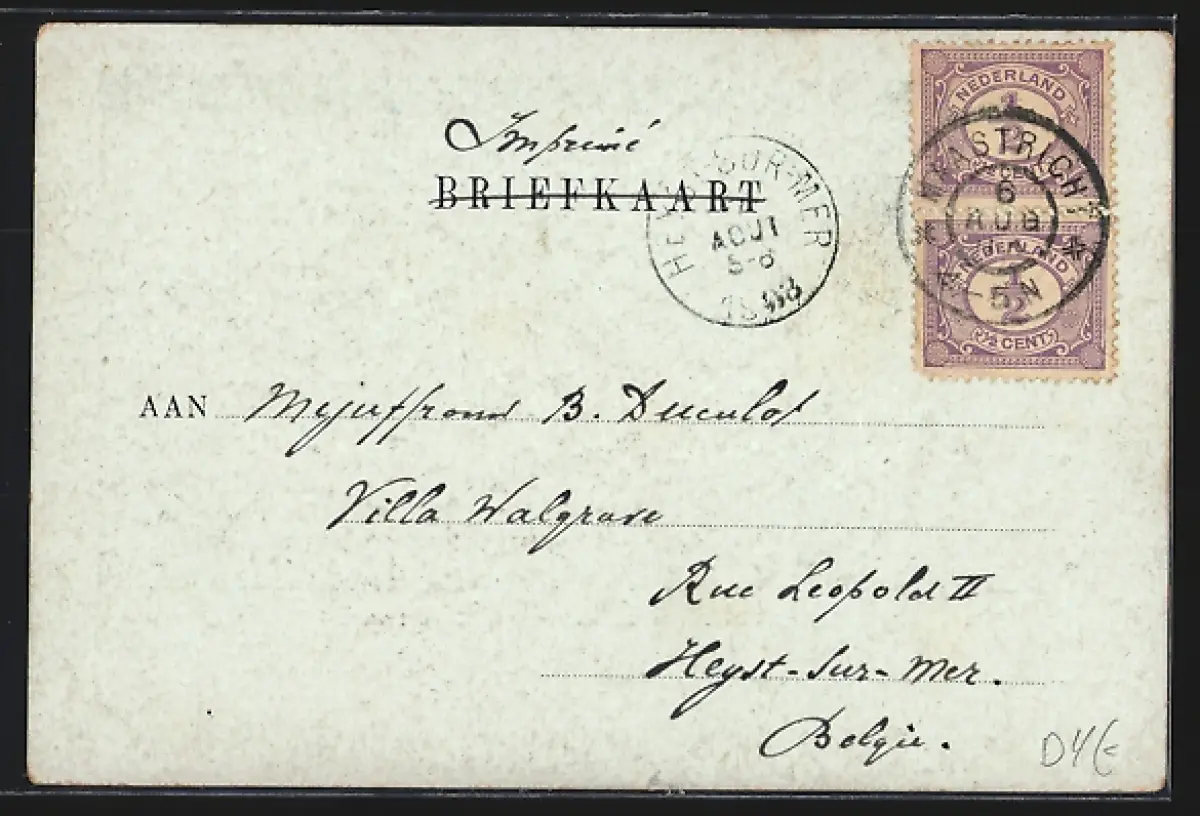 NEDERLAND
½ CENT
MAASTRICHT
6
AUG
5 N
NEDERLAND
1/2
½ CENT
Imprimé
BRIEFKAART
HEYST-SUR-MER
AOUT
5-6
AAN Mejuffrouw B.
Villa Walgrave
Rue Leopold II
Heyst-sur-Mer.
Belgie.
D4€